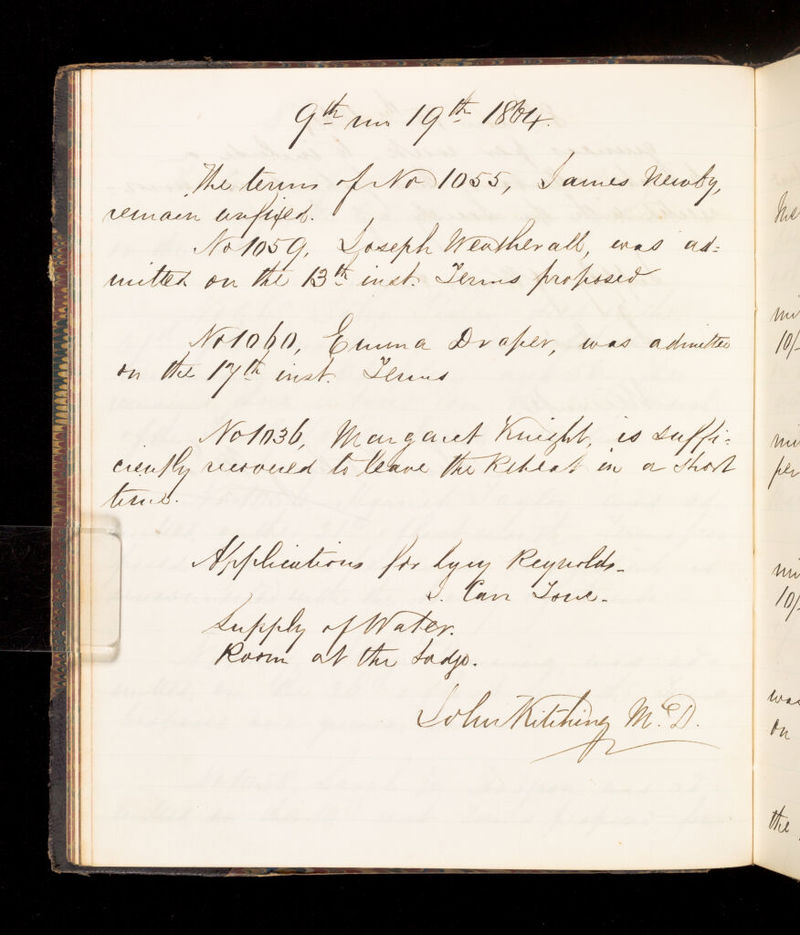 9th mo 19th 1864.
The terms of No 1055, James Newby,
remain unfixed.
No 1059, Joseph Weatherall, was ad=
mitted on the 13th inst. Terms proposed
No 1060, Emma Draper, was admitted
on the 17th inst. Terms
No 1036, Margaret Knight, is suffi=
ciently recovered to leave the Retreat in a short
time.
Applications for Lucy Reynolds.
J. Carr
Supply of Water.
Room at the Lodge.
John Kitching M.D.